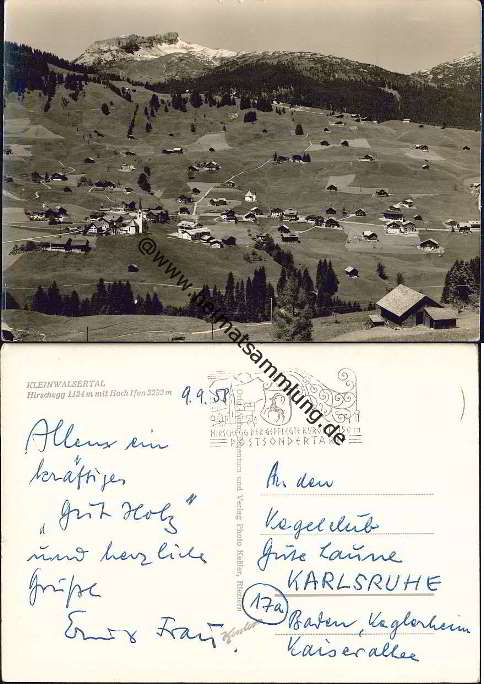 @www.heimatsammlung.de
KLEINWALSERTAL
Hirschegg 1124 m mit Hoch Ifen 2232 m
9.9.58
POSTSONDERTARIF
Allens ein
kräftiges
"Gut Holz"
und herzliche
Grüße
Frau
An den
Kegelclub
Gute Laune
KARLSRUHE
17a
Baden, Keglerheim
Kaiserallee
und Verlag Photo Keßler, Riezlern